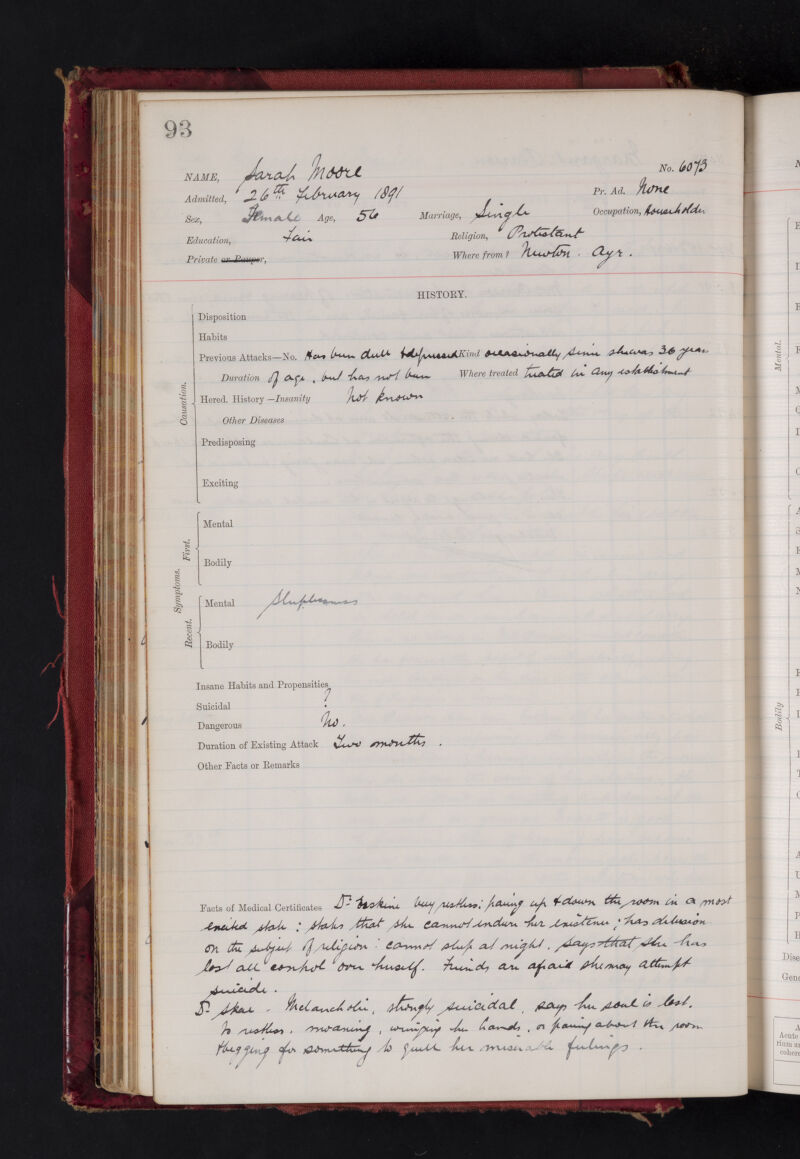 93
NAME, Sarah Moore No. 6073
Admitted, 26th February 1891 Pr. Ad. None
Sex, Female Age, 56 Marriage, Single Occupation, Householder
Education, Fair Religion, Protestant
Private or Pauper, Where from? Newton. Ayr.
HISTORY.
Causation.
Disposition
Habits
Previous Attacks—No. Has been dull & depressed Kind occasionally since she was 36 years
Duration of age, but has not been Where treated treated in any establishment
Hered. History—Insanity Not known
Other Diseases
Predisposing
Exciting
Symptoms.
First.
Mental
Bodily
Recent.
Mental Sleeplessness
Bodily
Insane Habits and Propensities
Suicidal ?
Dangerous No.
Duration of Existing Attack Two months.
Other Facts or Remarks
Facts of Medical Certificates Dr Erskine very restless: pacing up & down the room in a most
excited state: states that she cannot endure her existence; has delusion
on the subject of religion: cannot sleep at night. says that she has
lost all control over herself. Friends are afraid she may attempt
suicide.
Dr Skae. Melancholic, strongly suicidal, says her soul is lost.
Is restless. moaning, wringing her hands, or pacing about the room
& begging for something to quell her miserable feelings.
Mental.
Bodily
Dise
Gene
Acute
cohere